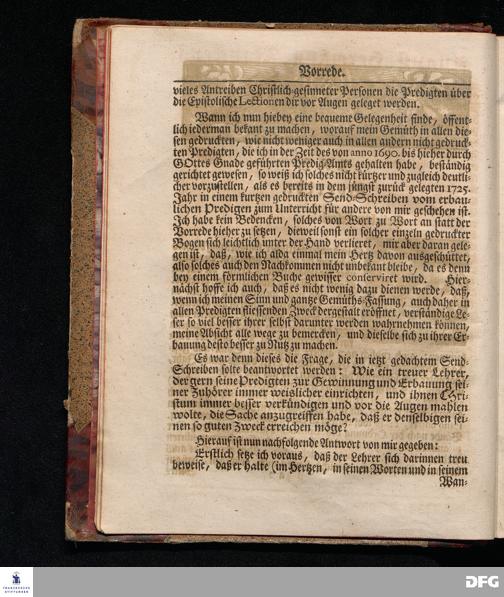 Vorrede.
vieles Antreiben Christlich-gesinneter Personen die Predigten über
die Epistolische Lectionen dir vor Augen geleget werden.
Wann ich nun hiebey eine bequeme Gelegenheit finde, öffent-
lich iederman bekant zu machen, worauf mein Gemüth in allen die-
sen gedruckten, wie nicht weniger auch in allen andern nicht gedruck-
ten Predigten, die ich in der Zeit des von anno 1690. bis hieher durch
GOttes Gnade geführten Predig-Amts gehalten habe, beständig
gerichtet gewesen, so weiß ich solches nicht kürtzer und zugleich deutli-
cher vorzustellen, als es bereits in dem jüngst zurück gelegten 1725.
Jahr in einem kurtzen gedruckten Send-Schreiben vom erbau-
lichen Predigen zum Unterricht für andere von mir geschehen ist.
Ich habe kein Bedencken, solches von Wort zu Wort an statt der
Vorrede hieher zu setzen, dieweil sonst ein solcher einzeln gedruckter
Bogen sich leichtlich unter der Hand verlieret, mir aber daran gele-
gen ist, daß, wie ich alda einmal mein Hertz davon ausgeschüttet,
also solches auch den Nachkommen nicht unbekant bleibe, da es denn
bey einem förmlichen Buche gewisser conserviret wird. Hier-
nächst hoffe ich auch, daß es nicht wenig dazu dienen werde, daß,
wenn ich meinen Sinn und gantze Gemüths-Fassung, auch daher in
allen Predigten fliessenden Zweck dergestalt eröffnet, verständige Le-
ser so viel besser ihrer selbst darunter werden wahrnehmen können,
meine Absicht alle wege zu bemercken, und dieselbe sich zu ihrer Er-
bauung desto besser zu Nutz zu machen.
Es war denn dieses die Frage, die in ietzt gedachtem Send-
Schreiben solte beantwortet werden: Wie ein treuer Lehrer,
der gern seine Predigten zur Gewinnung und Erbauung sei-
ner Zuhörer immer weislicher einrichten, und ihnen CHri-
stum immer besser verkündigen und vor die Augen mahlen
wolte, die Sache anzugreiffen habe, daß er denselbigen sei-
nen so guten Zweck erreichen möge?
Hierauf ist nun nachfolgende Antwort von mir gegeben:
Erstlich setze ich voraus, daß der Lehrer sich darinnen treu
beweise, daß er halte (im Hertzen, in seinen Worten und in seinem
Wan-
FRANCKESCHE
STIFTUNGEN
DFG